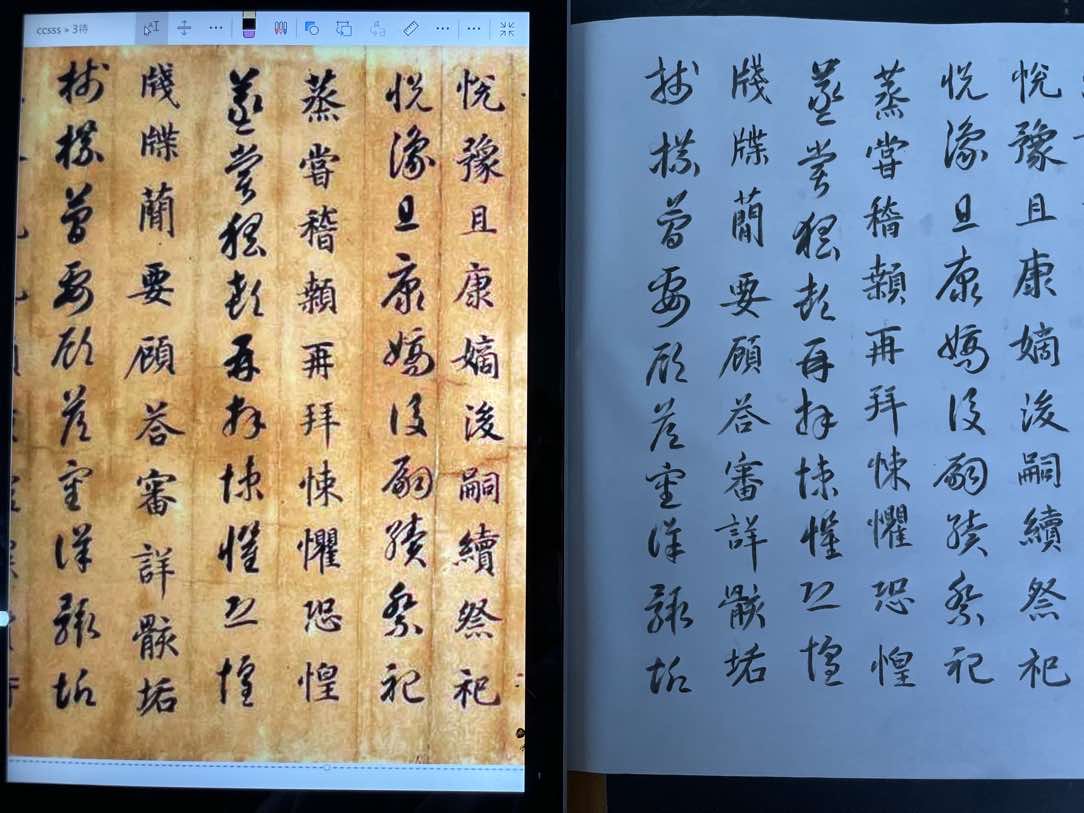 ccsss » 3待
悅豫且康嫡後嗣續祭祀
悅豫且康嫡後嗣續祭祀
蒸嘗稽顙再拜悚懼恐惶
蒸嘗稽顙再拜悚懼恐惶
牋牒簡要顧荅審詳骸垢
牋牒簡要顧荅審詳骸垢
悅豫且康嫡後嗣續祭祀
悅豫且康嫡後嗣續祭祀
蒸嘗稽顙再拜悚懼恐惶
蒸嘗稽顙再拜悚懼恐惶
牋牒簡要顧荅審詳骸垢
牋牒簡要顧荅審詳骸垢